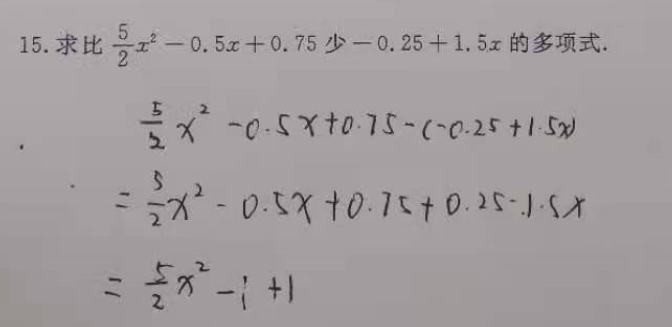 15. 求比 5/2 x² － 0.5x + 0.75 少 － 0.25 + 1.5x 的多项式.
5/2 x² -0.5x+0.75-(-0.25+1.5x)
= 5/2 x² - 0.5x+0.75+0.25-1.5x
= 5/2 x² - +1